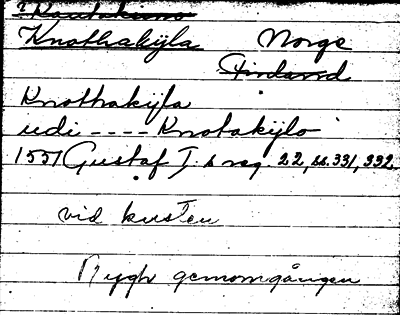 Knothakÿla Norge
Finland
Knothakÿla
udi ---- Knotakÿlo
1551 Gustaf I. s reg. 22, ss. 331, 332.
vid kusten
Rygh genomgången